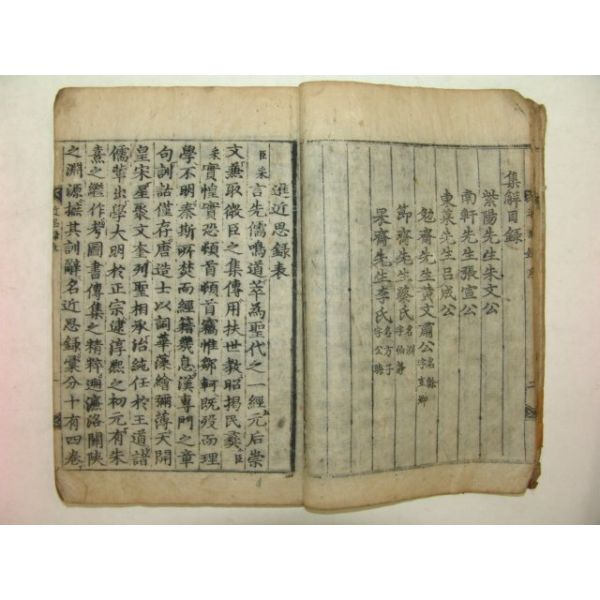 集解目録
紫陽先生朱文公
南軒先生張宣公
東萊先生呂成公
勉齋先生黃文肅公 名榦 字直卿
節齋先生蔡氏 名淵 字伯靜
果齋先生李氏 名方子 字公晦
進近思錄表
臣采言先儒鳴道萃為聖代之一經元后崇
文兼取微臣之集傳用扶世教昭揭民彝臣
采實惶實恐頓首頓首竊惟鄒軻既歿而理
學不明秦斯所焚而經籍幾息漢專門之章
句訓詁僅存唐造士以詞華藻繪彌薄天開
皇宋星聚文奎列聖相承治統任於王道諸
儒輩出學大明於正宗逮淳熙之初元有朱
熹之繼作考圖書傳集之精粹遡濂洛關陝
之淵源摭其訓辭名近思錄彙分十有四卷